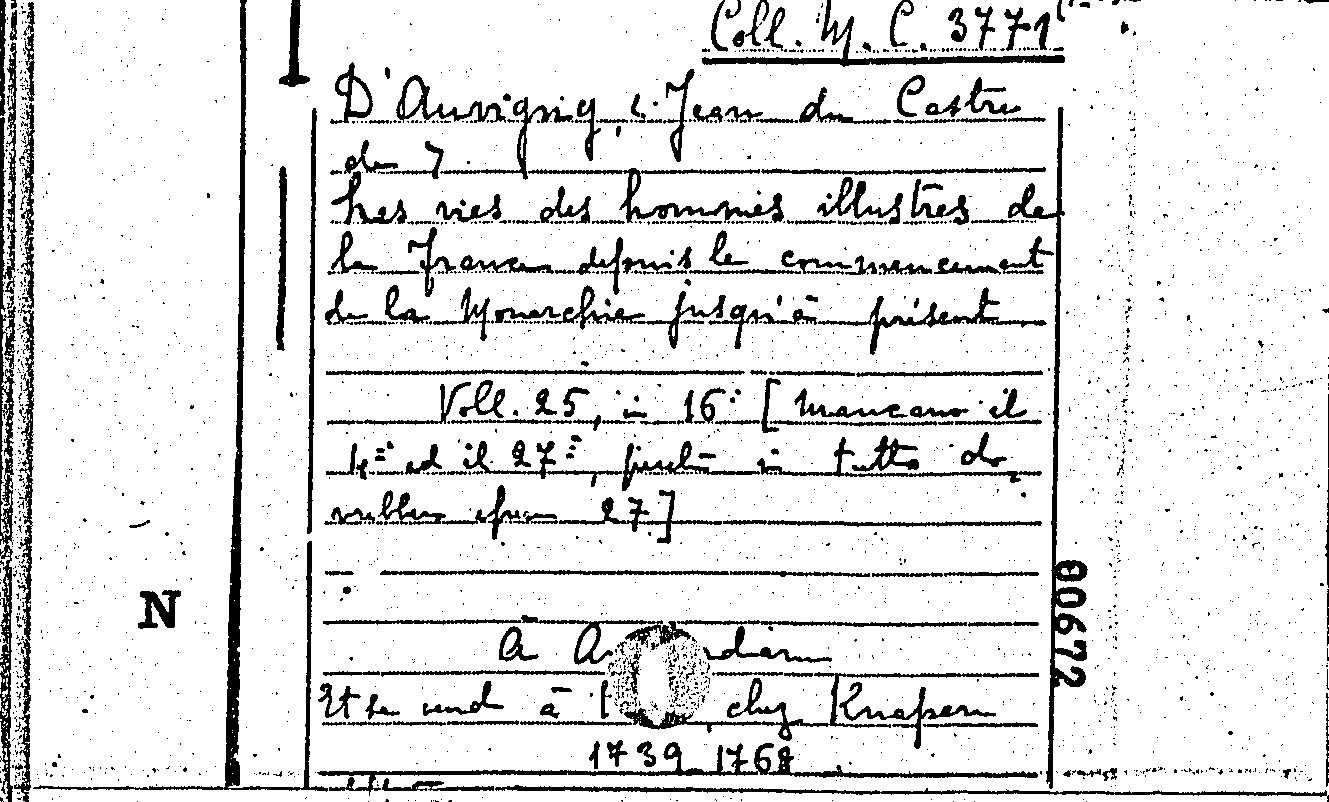 Coll. M. C. 3771
D'Auvigny, Jean du Castre
de 7.
Les vies des hommes illustres de
la France depuis le commencement
de la Monarchie jusqu'à présent
Voll. 25, in 16° [mancano il
ed il 27°, perchè in tutto do
vrebbero essere 27]
À
Et se vend à chez Knapen
1739_1768
N
00672